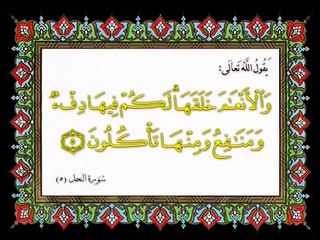 يَقُولُ اللَّهُ تَعَالَى:
وَٱلۡأَنۡعَٰمَ خَلَقَهَاۗ لَكُمۡ فِيهَا دِفۡءٞ
وَمَنَٰفِعُ وَمِنۡهَا تَأۡكُلُونَ ٥
سُورَة النحل (٥)